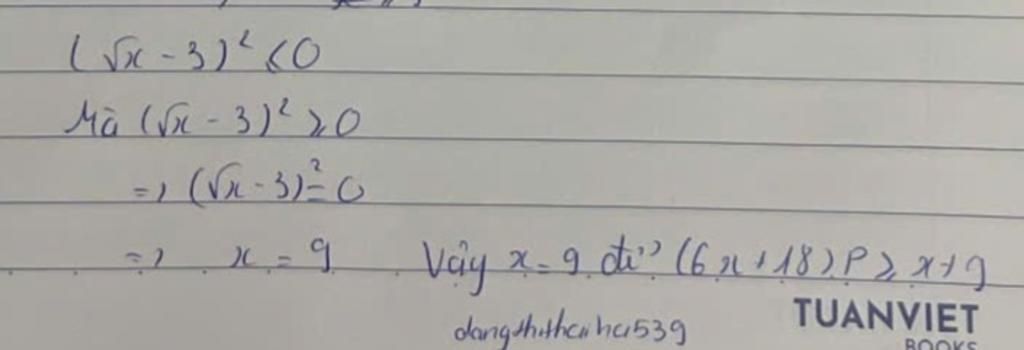 (√x - 3)² < 0
Mà (√x - 3)² ≥ 0
=> (√x - 3)² = 0
=> x = 9 Vậy x = 9 để (6x + 18) P ≥ x + 9
dangthithaiha539
TUANVIET
BOOKS